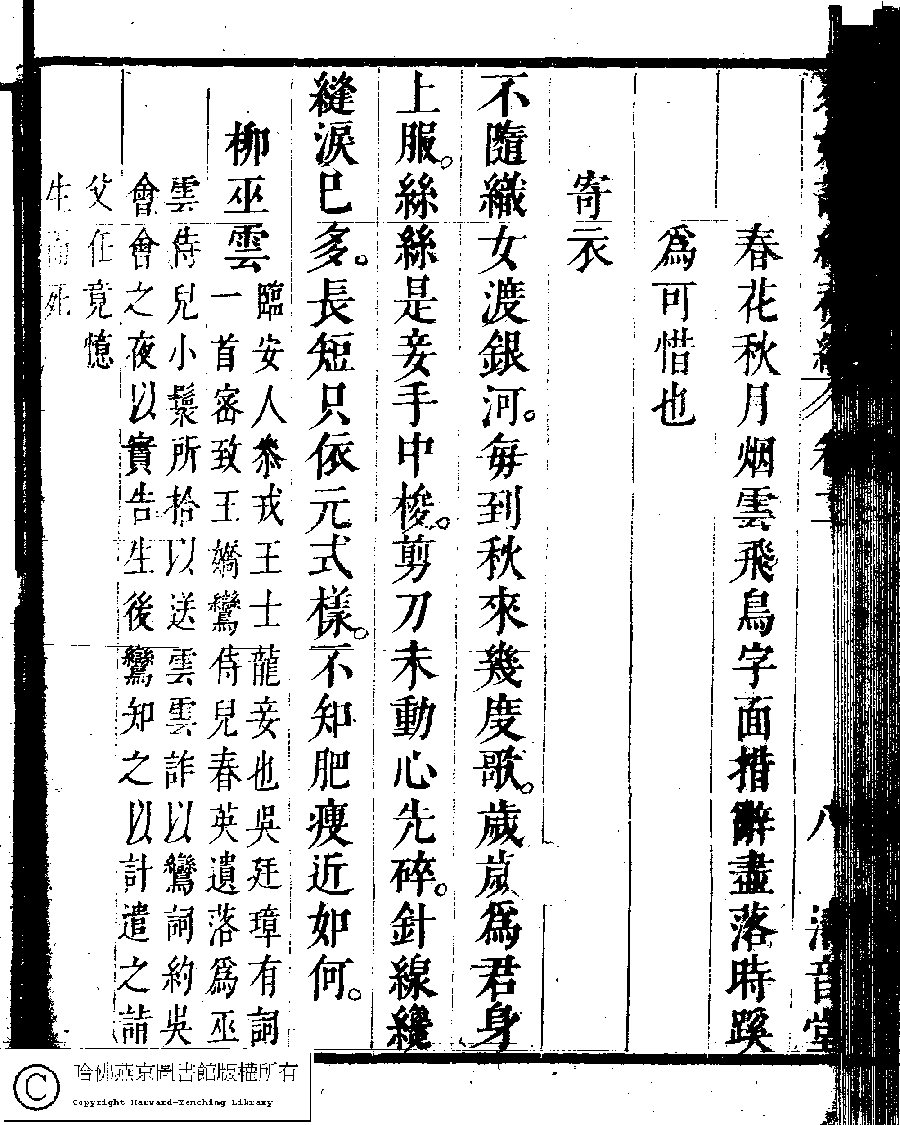 春花秋月烟雲飛鳥字面措辭盡落時蹊
爲可惜也
寄衣
不隨織女渡銀河。每到秋來幾度歌。歲歲爲君身
上服。絲絲是妾手中梭。剪刀未動心先碎。針線纔
縫淚巳多。長短只依元式樣。不知肥瘦近如何。
柳巫雲
臨安人叅戎王士龍妾也吳廷璋有詞
一首密致王嬌鸞侍兒春英遺落爲巫
雲侍兒小鬟所拾以送雲雲詐以鸞詞約吳
會會之夜以實告生後鸞知之以計遣之請
父任竟憶
生而死
八 清音堂
哈佛燕京圖書館版權所有
Copyright Harvard-Yenching Library